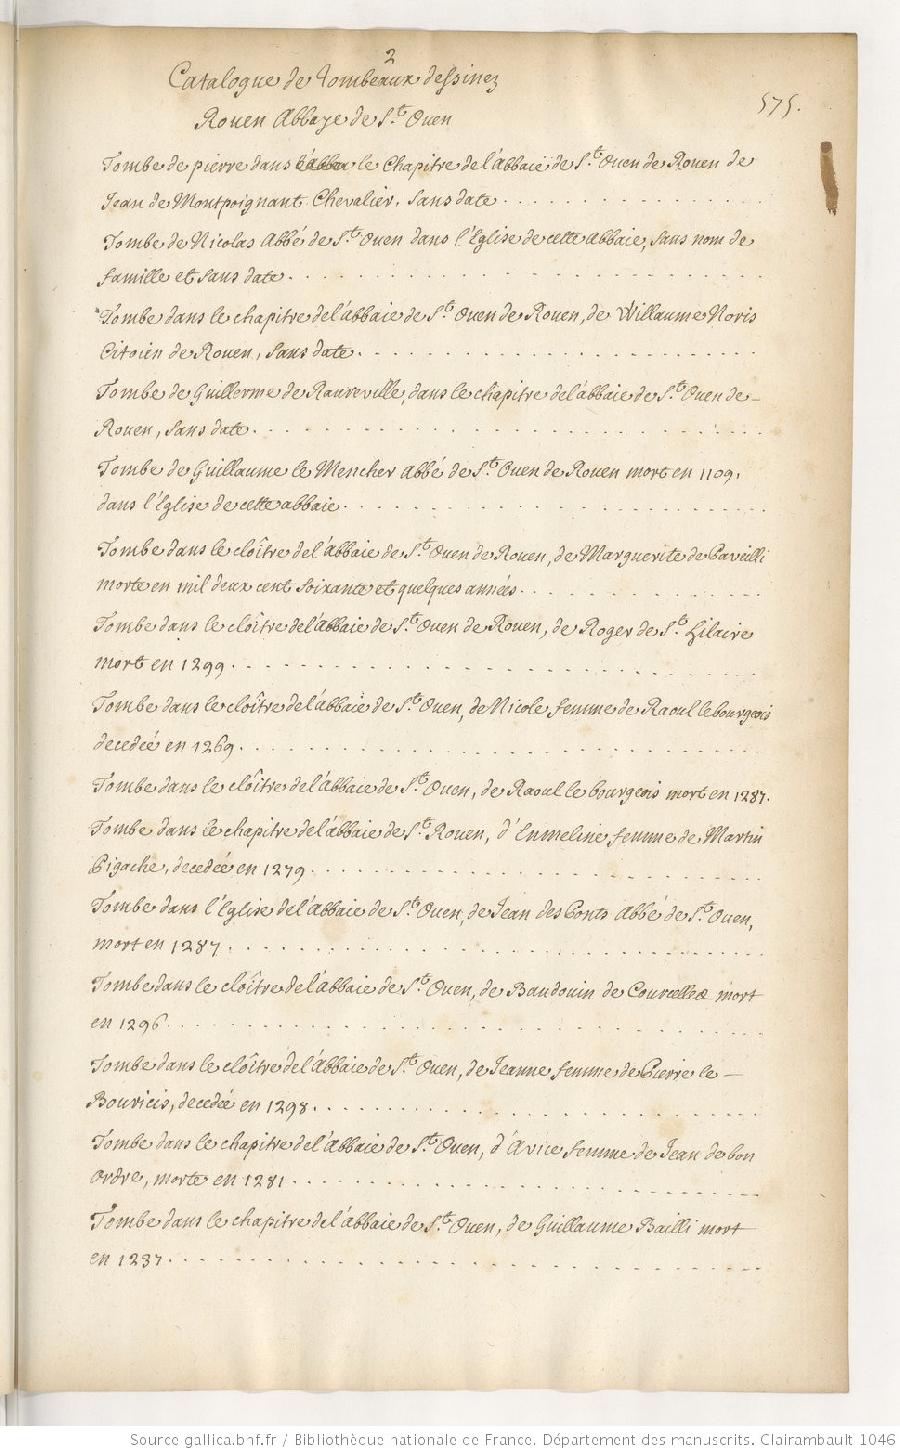 2
Catalogue de tombeaux dessinez
575.
Rouen Abbaye de S.t Ouen
Tombe de pierre dans l'abba le Chapitre de l'abbaie de S.t Ouen de Rouen de
Jean de Montpoignant Chevalier, sans date
Tombe de Nicolas Abbé de S.t Ouen dans l'Eglise de cette abbaie, sans nom de
famille et sans date
Tombe dans le chapitre de l'abbaie de S.t Ouen de Rouen, de Willaume Noris
Citoien de Rouen, sans date
Tombe de Guillerme de Raureville, dans le chapitre de l'abbaie de S.t Ouen de
Rouen, sans date
Tombe de Guillaume le Mencher Abbé de S.t Ouen de Rouen mort en 1109,
dans l'Eglise de cette abbaie
Tombe dans le cloître de l'abbaie de S.t Ouen de Rouen, de Marguerite de Paveilli
morte en mil deux cent soixante et quelques années
Tombe dans le cloître de l'abbaie de S.t Ouen de Rouen, de Roger de S.t Hilaire
mort en 1299
Tombe dans le cloître de l'abbaie de S.t Ouen, de Nicole femme de Raoul le bourgeois
decedée en 1269
Tombe dans le cloître de l'abbaie de S.t Ouen, de Raoul le bourgeois mort en 1287.
Tombe dans le chapitre de l'abbaie de S.t Rouen, d'Enmeline femme de Martin
Pigache, decedée en 1279
Tombe dans l'Eglise de l'abbaie de S.t Ouen, de Jean des Ponts Abbé de S.t Ouen,
mort en 1287
Tombe dans le cloître de l'abbaie de S.t Ouen, de Baudouin de Courcelles mort
en 1296
Tombe dans le cloître de l'abbaie de S.t Ouen, de Jeanne femme de Pierre le
decedée en 1298
Tombe dans le chapitre de l'abbaie de S.t Ouen, d'Avice femme de Jean de bon
ordre, morte en 1281
Tombe dans le chapitre de l'abbaie de S.t Ouen, de Guillaume Bailli mort
en 1237
Source gallica.bnf.fr / Bibliothèque nationale de France. Département des manuscrits. Clairambault 1046